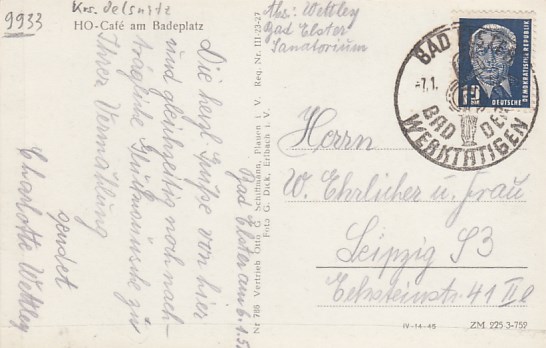 9933
Krs. Oelsnitz
HO-Café am Badeplatz
Abs: Wettley
Bad Elster
Sanatorium
Bad Elster am 6.1.5
Die herzl. Grüße von hier
und gleichzeitig noch nach-
trägliche Glückwünsche zu
Ihrer Vermählung
sendet
Charlotte Wettley
Nr 788 Vertrieb Otto G. Schiffmann, Plauen i. V. Reg. Nr. III-23-27
Foto G. Dick, Erlbach i. V.
BAD
-7.1.
BAD DER
WERKTÄTIGEN
DEUTSCHE
DEMOKRATISCHE REPUBLIK
Herrn
W. Ehrlicher u. Frau
Leipzig S3
Ecksteinstr. 41 II
IV-14-45
ZM 225 3-752